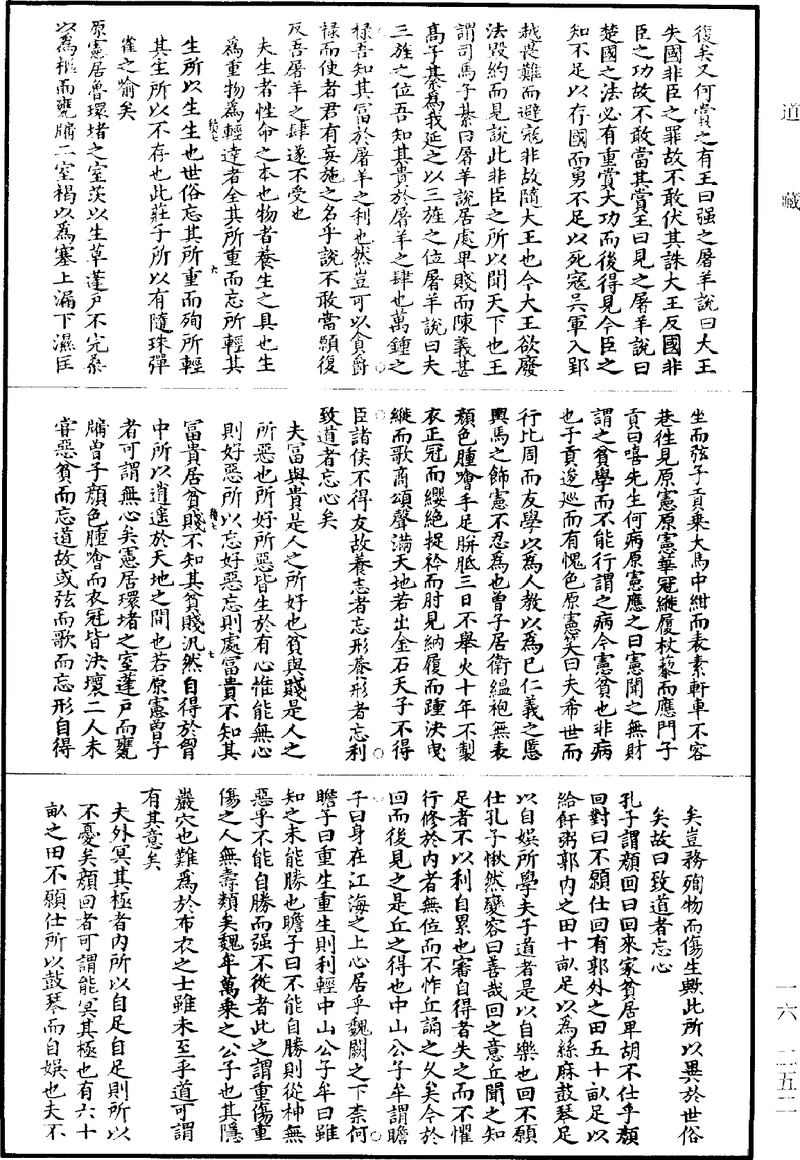 道藏
復矣又何賞之有王曰强之屠羊說曰大王
失國非臣之罪故不敢伏其誅大王反國非
臣之功故不敢當其賞王曰見之屠羊說曰
楚國之法必有重賞大功而後得見今臣之
知不足以存國而勇不足以死寇吳軍入郢
越畏難而避寇非故隨大王也今大王欲廢
法毀約而見說此非臣之所以聞天下也王
謂司馬子綦曰屠羊說居處卑賤而陳義甚
高子綦為我延之以三旌之位屠羊說曰夫
三旌之位吾知其貴於屠羊之肆也萬鍾之
祿吾知其富於屠羊之利也然豈可以食爵
祿而使者君有妄施之名乎說不敢當願復
反吾屠羊之肆遂不受也
夫生者性命之本也物者養生之具也生
為重物為輕達者全其所重而忘所輕其
生所以生生也世俗忘其所重而殉所輕
其生所以不存也此莊子所以有隨珠彈
雀之喻矣
原憲居魯環堵之室茨以生草蓬戶不完桑
以為樞而甕牖二室褐以為塞上漏下濕匡
坐而弦子貢乘大馬中紺而表素軒車不容
巷往見原憲原憲華冠縰履杖藜而應門子
貢曰嘻先生何病原憲應之曰憲聞之無財
謂之貧學而不能行謂之病今憲貧也非病
也子貢逡巡而有愧色原憲笑曰夫希世而
行比周而友學以為人教以為已仁義之慝
輿馬之飾憲不忍為也曾子居衛縕袍無表
顏色腫噲手足胼胝三日不舉火十年不製
衣正冠而纓絕捉衿而肘見納履而踵決曳
縰而歌商頌聲滿天地若出金石天子不得
臣諸侯不得友故養志者忘形養形者忘利
致道者忘心矣
夫富與貴是人之所好也貧與賤是人之
所惡也所好所惡皆生於有心惟能無心
則好惡所以忘好惡忘則處富貴不知其
富貴居貧賤不知其貧賤汎然自得於胷
中所以逍遙於天地之間也若原憲曾子
者可謂無心矣憲居環堵之室蓬戶而甕
牖曾子顏色腫噲而衣冠皆決壞二人未
甞惡貧而忘道故或弦而歌而忘形自得
矣豈務殉物而傷生歟此所以異於世俗
矣故曰致道者忘心
孔子謂顏回曰回來家貧居卑胡不仕乎顏
回對曰不願仕回有郭外之田五十畝足以
給飦粥郭內之田十畝足以為絲麻鼓琴足
以自娛所學夫子道者是以自樂也回不願
仕孔子愀然變容曰善哉回之意丘聞之知
足者不以利自累也審自得者失之而不懼
行修於內者無位而不怍丘誦之久矣今於
回而後見之是丘之得也中山公子牟謂瞻
子曰身在江海之上心居乎魏闕之下柰何
瞻子曰重生重生則利輕中山公子牟曰雖
知之未能勝也瞻子曰不能自勝則從神無
惡乎不能自勝而强不從者此之謂重傷重
傷之人無壽類矣魏牟萬乘之公子也其隱
巖穴也難為於布衣之士雖未至乎道可謂
有其意矣
夫外冥其極者內所以自足自足則所以
不憂矣顏回者可謂能冥其極也有六十
畝之田不願仕所以鼓琴而自娛也夫不
一六 二五二